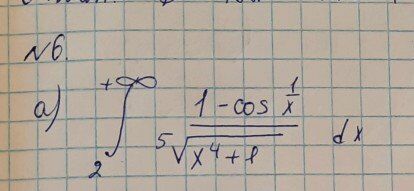 №6.
а) ∫₂^{+∞} (1 - cos 1/x) / ⁵√(x⁴ + 1) dx